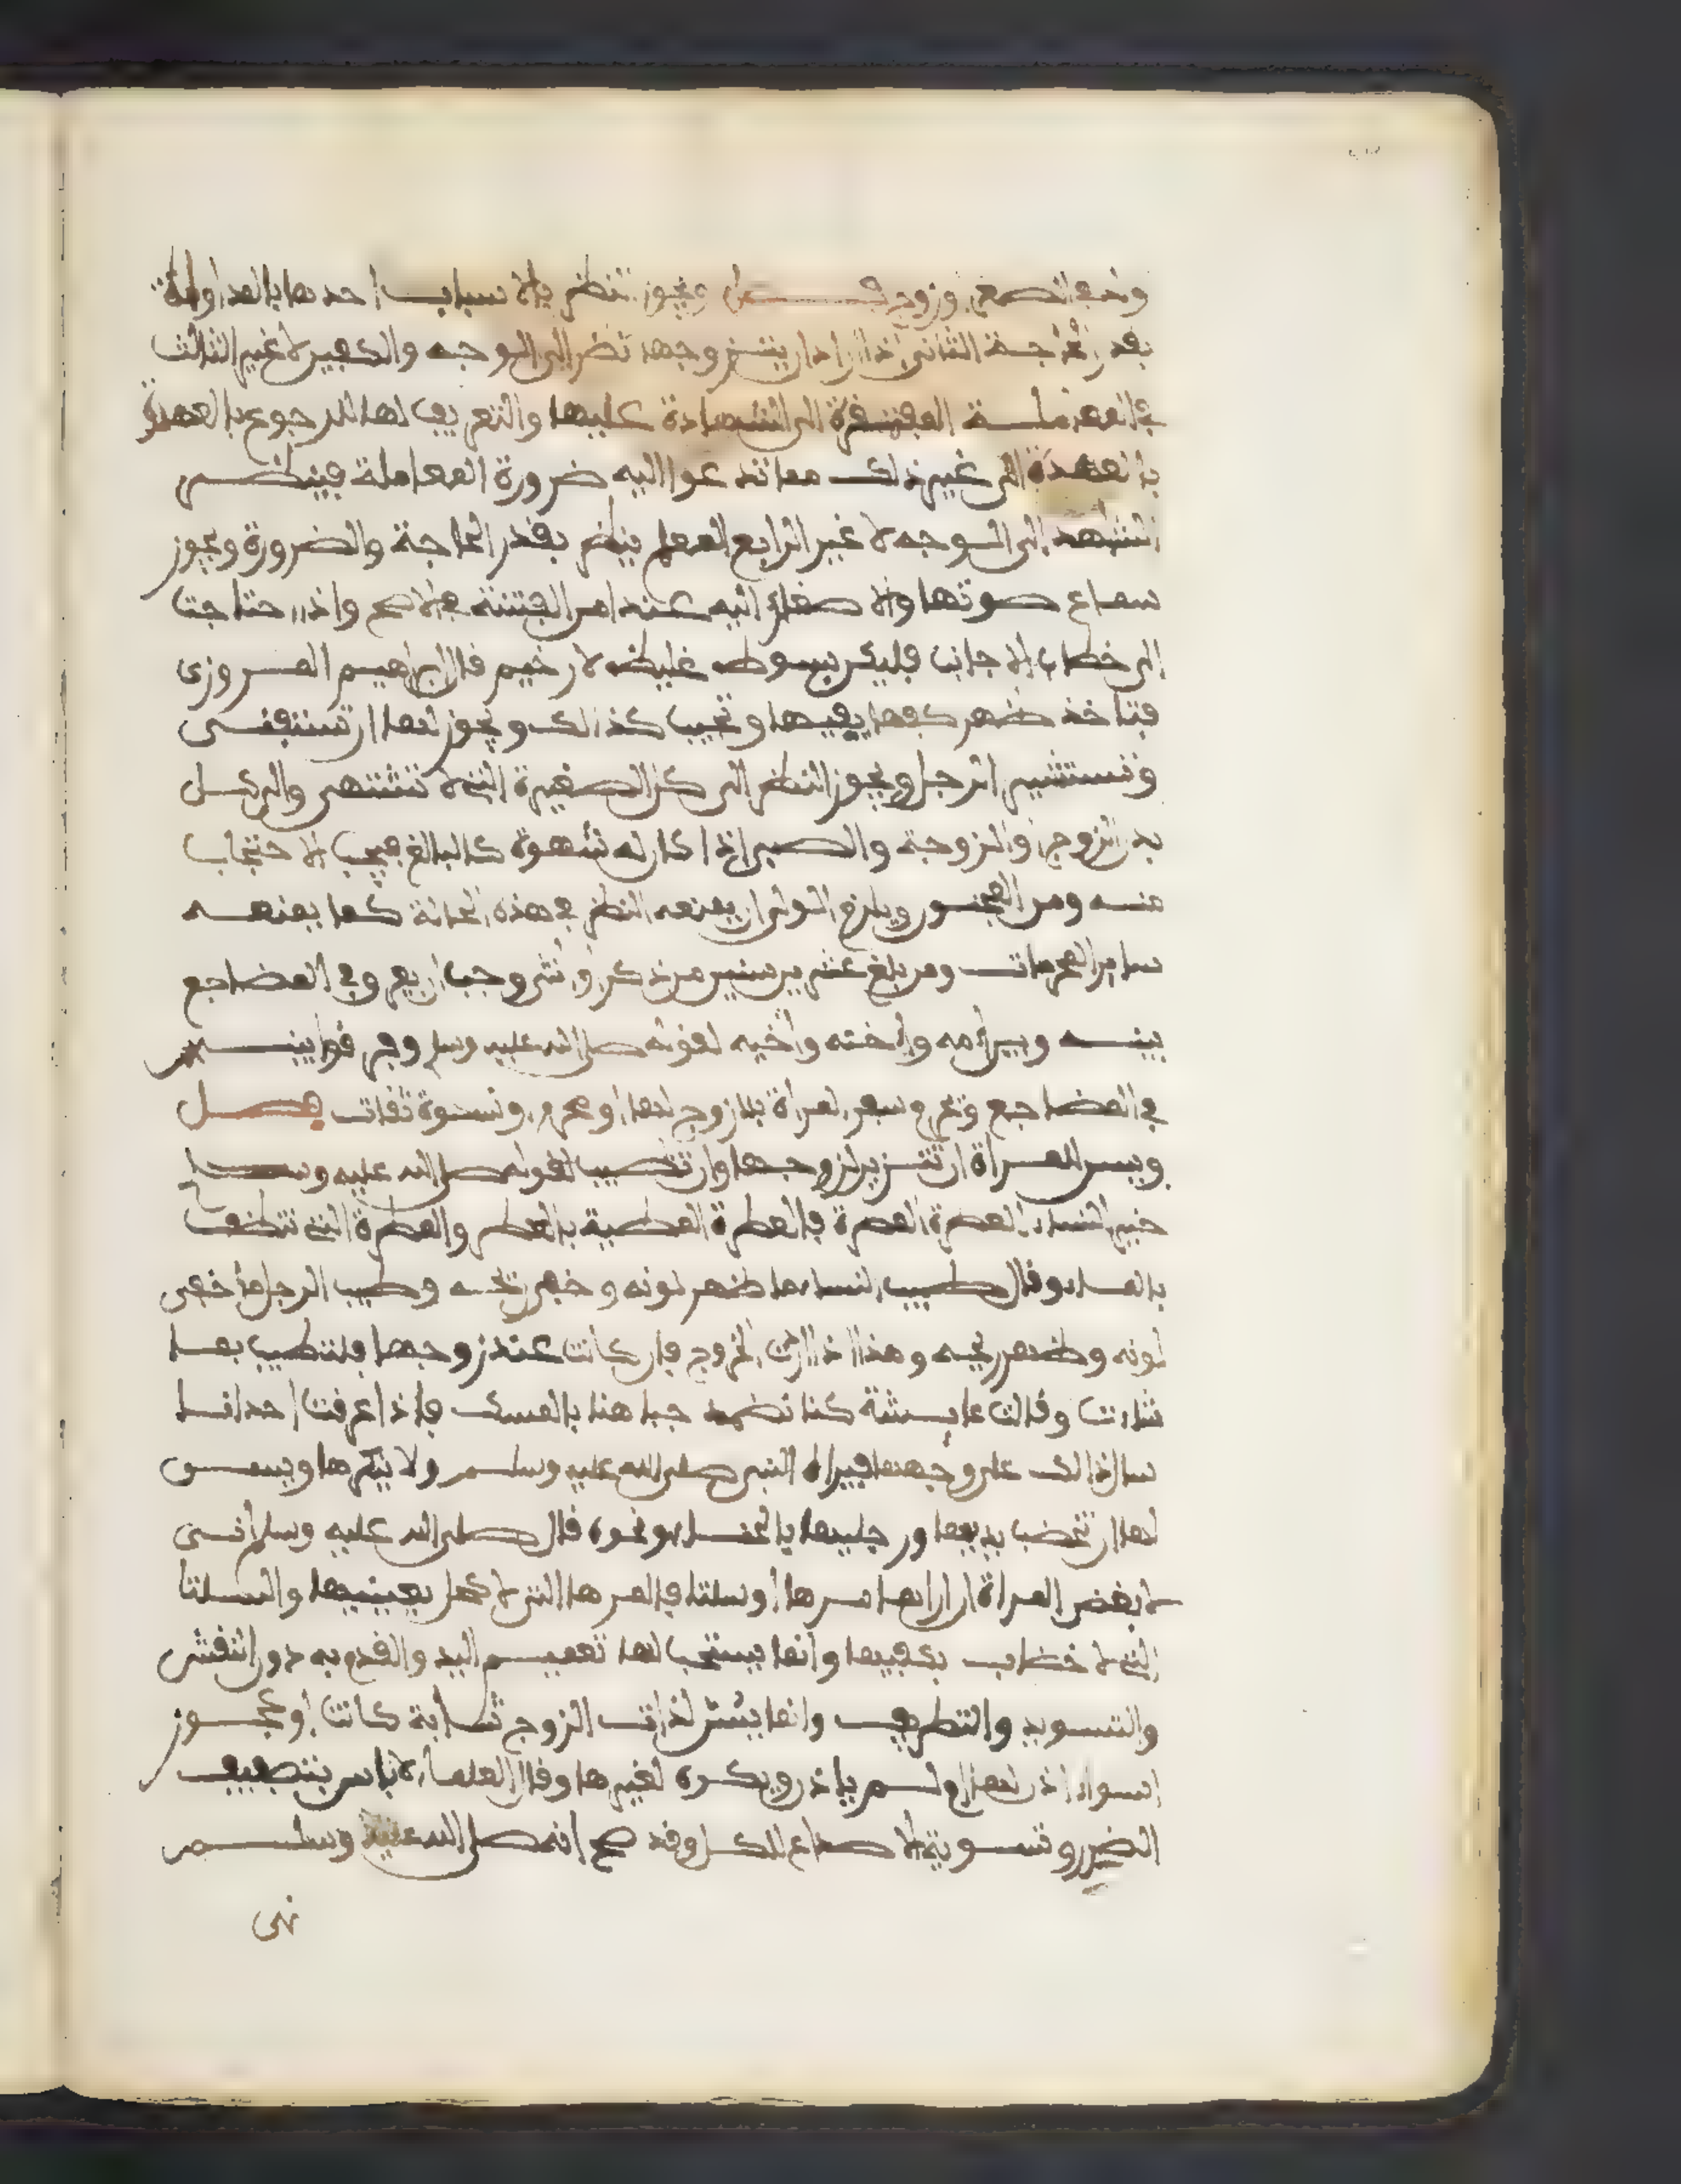 وجوز النظر بالاسباب احدها بالمداواة
بقدر الحاجة الثاني اذا اراد ان يتزوجها نضر الى الوجه والكفين لا غير الثالث
في المعاملة المفتقرة الى الشهادة عليها والتعريف لها للرجوع بالعهدة
بالعهدة الى غير ذلك مما تدعوا اليه ضرورة المعاملة فينظر
الشاهد الى الوجه لا غير الرابع المعلم ينظر بقدر الحاجة والضرورة ويجوز
سماع صوتها والاصغاء اليه عند امن الفتنة في الاصح واذا احتاجت
الى خطاب الاجانب فليكن بصوت غليظ لا رخيم قال ابراهيم المروزي
فتاخذ ظهر كفها بفيها وتجيب كذالك ويجوز لها ان تستفتي
وتستشير الرجل ويجوز النظر الى كل الصغيرة التي لا تشتهى والى كل
بدن الزوج والزوجة والصبي اذا كان له شهوة كالبالغ فيجب الاحتجاب
منه ومن المجنون ويلزم الولي ان يمنعه النظر في هذه الحالة كما يمنعه
سائر المحرمات ومن بلغ عشر سنين من ذكر او انثى وجب في المضاجع
بينه وبين امه واخته واخيه لقوله صلى الله عليه وسلم وفرقوا بينهم
في المضاجع ويحرم سفر المراة بلا زوج لها او محرم او نسوة ثقات فصل
ويسن للمراة ان تتزين لزوجها وان تخضب لقوله صلى الله عليه وسلم
خير النساء العطرة المطرة فالعطرة المطيبة بالعطر والمطرة التي تتنظف
بالماء وقال طيب النساء ما ظهر لونه وخفي ريحه وطيب الرجل ما خفي
لونه وظهر ريحه وهذا اذا ارادت الخروج فان كانت عند زوجها فلتتطيب بما
شاءت وقالت عايشة كنا نضمد جباهنا بالمسك فاذا عرقت احدانا
سال ذالك على وجهها فيراه النبي صلى الله عليه وسلم ولا ينكرها ويسن
لها ان تخضب يديها ورجليها بالحناء ونحوه قال صلى الله عليه وسلم اني
لابغض المراة ان اراها مرها او سلتا فالمرها التي لا كحل بعينيها والسلتا
التي لا خضاب بكفيها وانما يستحب لها تعميم اليد والقدم به دون النقش
والتسويد والتطريف وانما يسن لذات الزوج شابة كانت او عجوز
اسواء اذن لها او لم ياذن ويكره لغيرها وقال العلماء لا باس بتصفيف
وتسوية الاصداغ للكل وقد صح انه صلى الله عليه وسلم
نهى